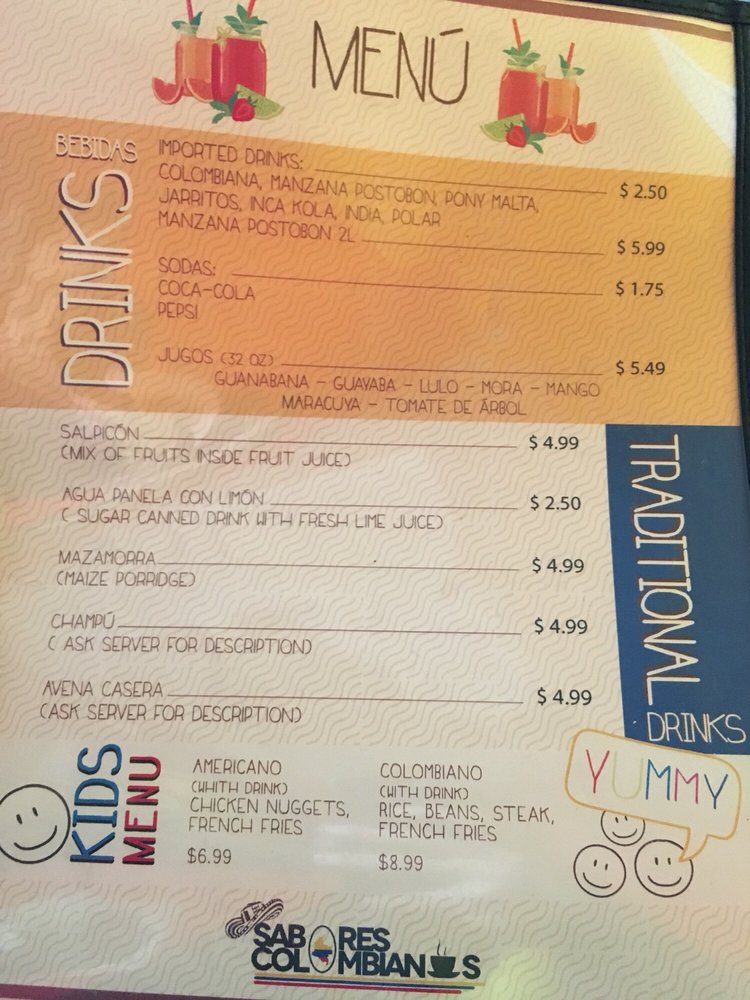 MENÚ
BEBIDAS
DRINKS
IMPORTED DRINKS: $ 2.50
COLOMBIANA, MANZANA POSTOBON, PONY MALTA,
JARRITOS, INCA KOLA, INDIA, POLAR
MANZANA POSTOBON 2L $ 5.99
SODAS: $ 1.75
COCA-COLA
PEPSI
JUGOS (32 OZ) $ 5.49
GUANABANA - GUAYABA - LULO - MORA - MANGO
MARACUYA - TOMATE DE ÁRBOL
TRADITIONAL
DRINKS
SALPICÓN $ 4.99
(MIX OF FRUITS INSIDE FRUIT JUICE)
AGUA PANELA CON LIMÓN $ 2.50
( SUGAR CANNED DRINK WITH FRESH LIME JUICE)
MAZAMORRA $ 4.99
(MAIZE PORRIDGE)
CHAMPÚ $ 4.99
( ASK SERVER FOR DESCRIPTION)
AVENA CASERA $ 4.99
(ASK SERVER FOR DESCRIPTION)
KIDS
MENU
AMERICANO
(WHITH DRINK)
CHICKEN NUGGETS,
FRENCH FRIES
$6.99
COLOMBIANO
(WITH DRINK)
RICE, BEANS, STEAK,
FRENCH FRIES
$8.99
YUMMY
SABORES
COLOMBIANOS